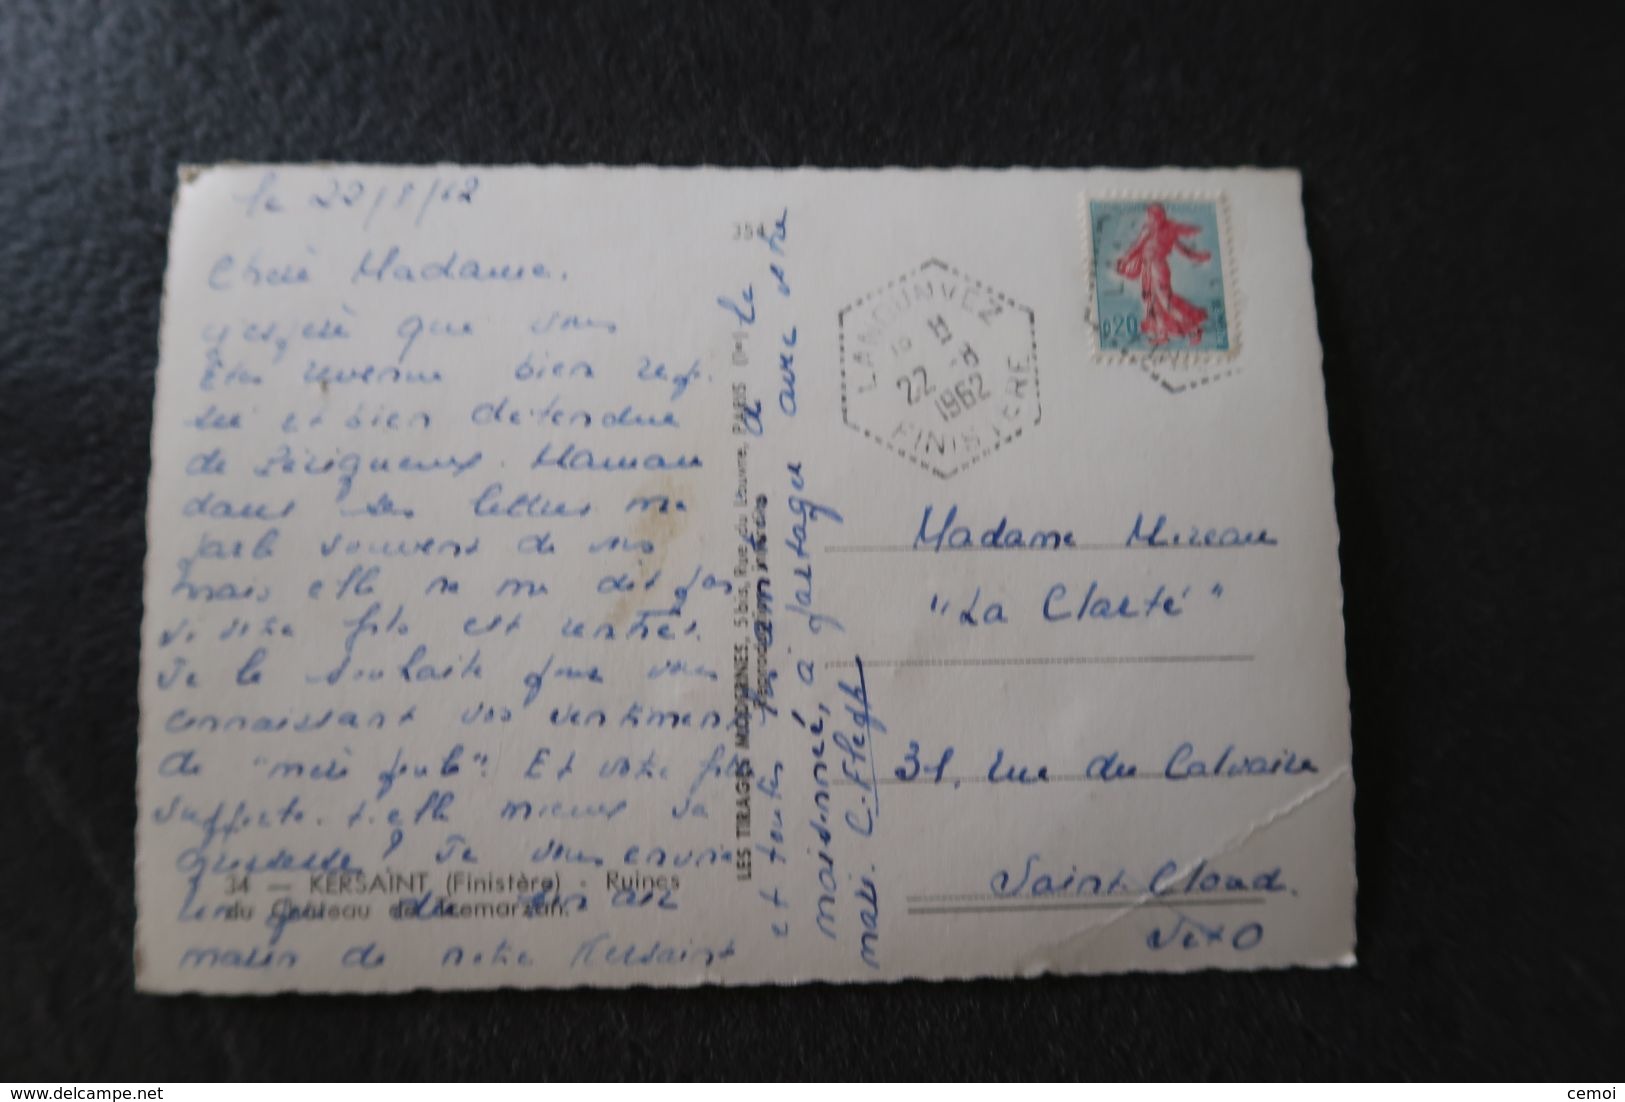 le 22/8/62
Chère Madame.
J'espère que vous
êtes revenue bien repo
sée et bien détendue
de Périgueux. Maman
dans ses lettres me
parle souvent de vous
mais elle ne me dit pas
si votre fils est rentré.
Je le souhaite pour vous
connaissant vos sentiments
de "mère poule". Et votre fille
supporte-t-elle mieux sa
grossesse? Je vous envoie
un peu du bon air
marin de notre Kersaint
et toutes mes amitiés de la
maisonnée, à partager avec votre
mari.
34 — KERSAINT (Finistère) - Ruines
du Château de Trémarzan.
354
LES TIRAGES MODERNES, 5 bis, Rue du Louvre, PARIS (1er)
Reproduction interdite
LANDUNVEZ
22 -8
1962
FINISTERE
0,20
Madame Mireau
"La Clarté"
31, rue du Calvaire
Saint Cloud.
S et O
cemoi
delcampe.net